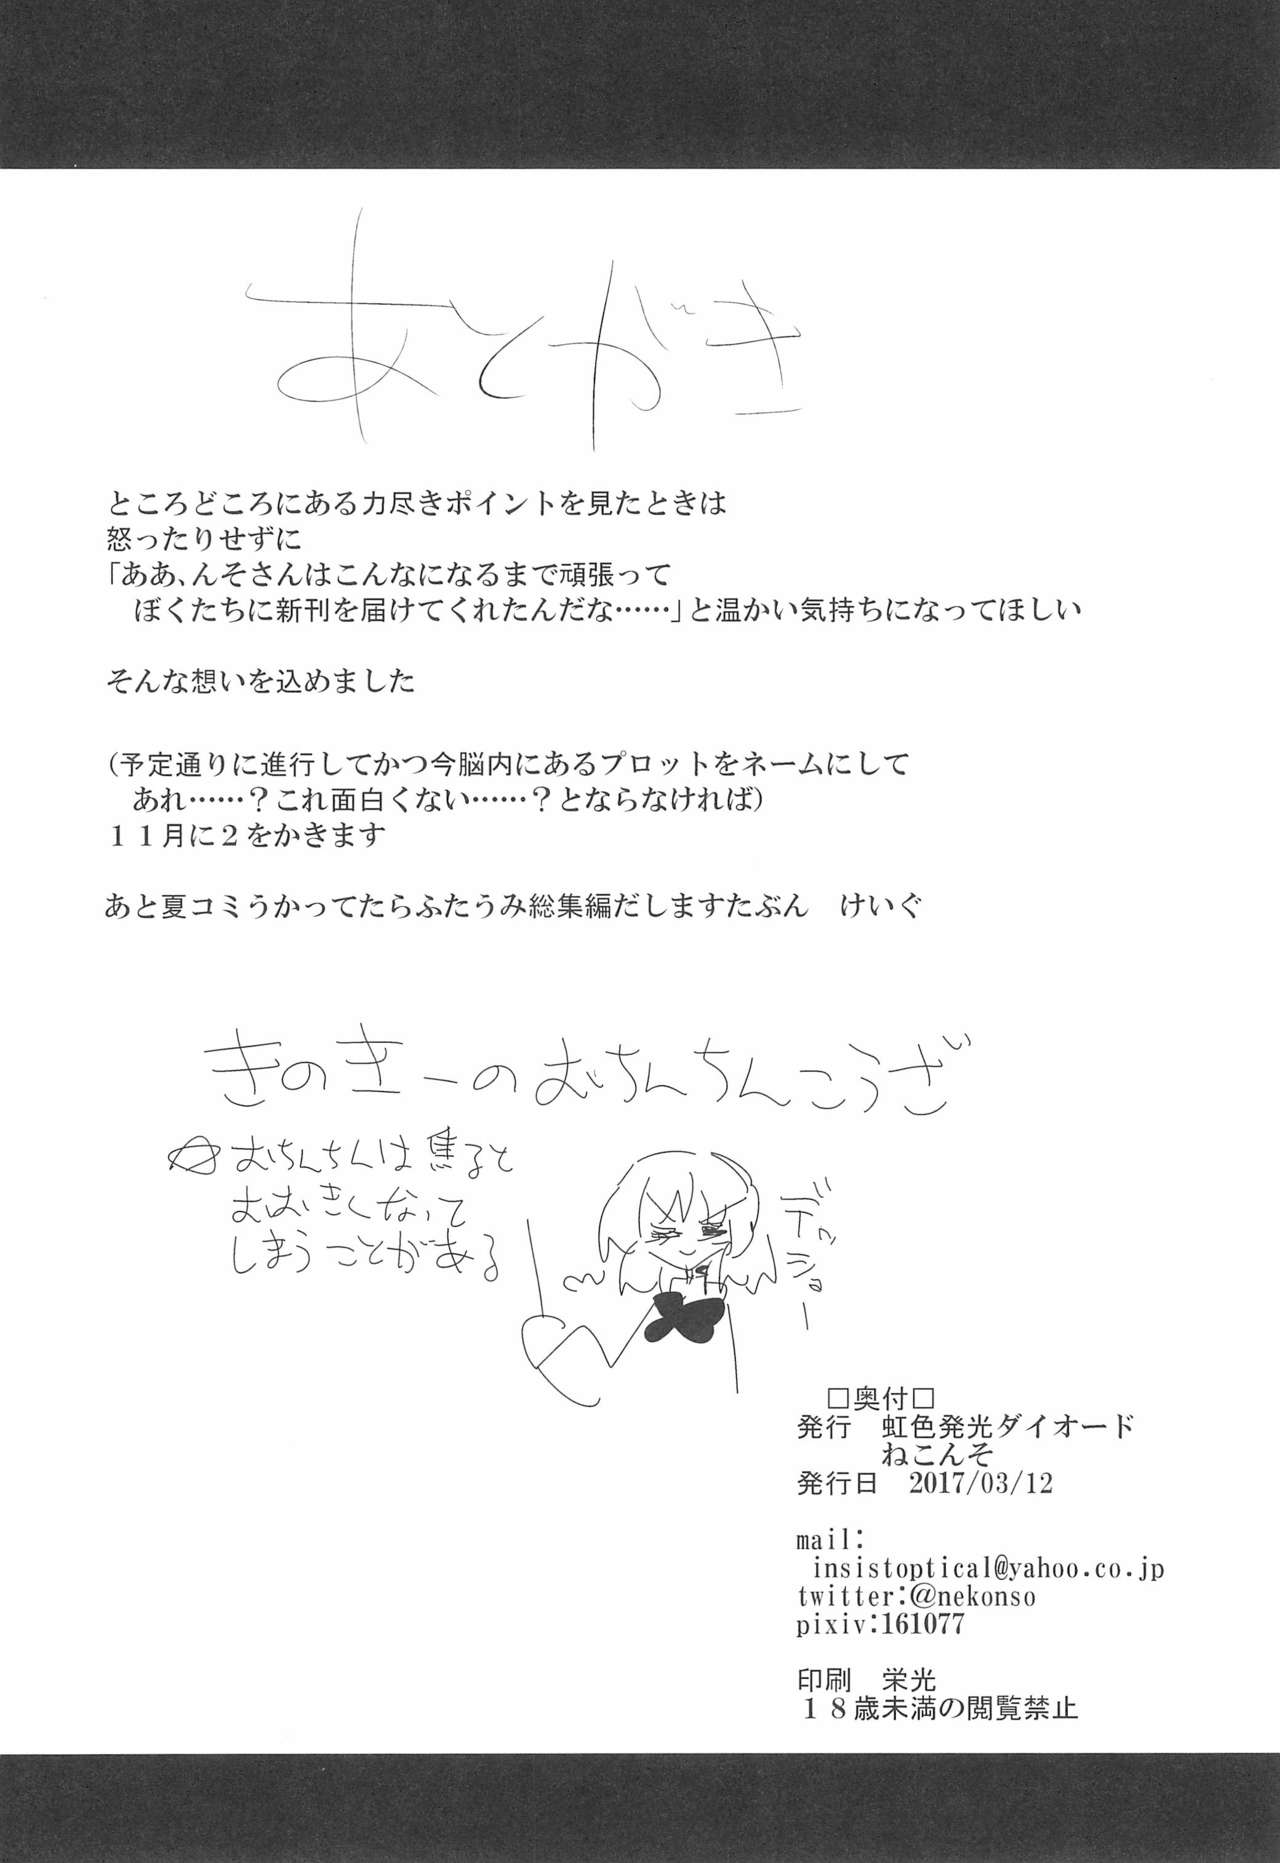 あとがき
ところどころにある力尽きポイントを見たときは
怒ったりせずに
「ああ、んそさんはこんなになるまで頑張って
ぼくたちに新刊を届けてくれたんだな……」と温かい気持ちになってほしい
そんな想いを込めました
(予定通りに進行してかつ今脳内にあるプロットをネームにして
あれ……？これ面白くない……？とならなければ)
１１月に２をかきます
あと夏コミうかってたらふたうみ総集編だしますたぶん　けいぐ
きのきーのおちんちんこうざ
☆おちんちんは焦ると
おおきくなって
しまうことがある
デッショー
□奥付□
発行　虹色発光ダイオード
ねこんそ
発行日　2017/03/12
mail:
insistoptical@yahoo.co.jp
twitter:@nekonso
pixiv:161077
印刷　栄光
１８歳未満の閲覧禁止